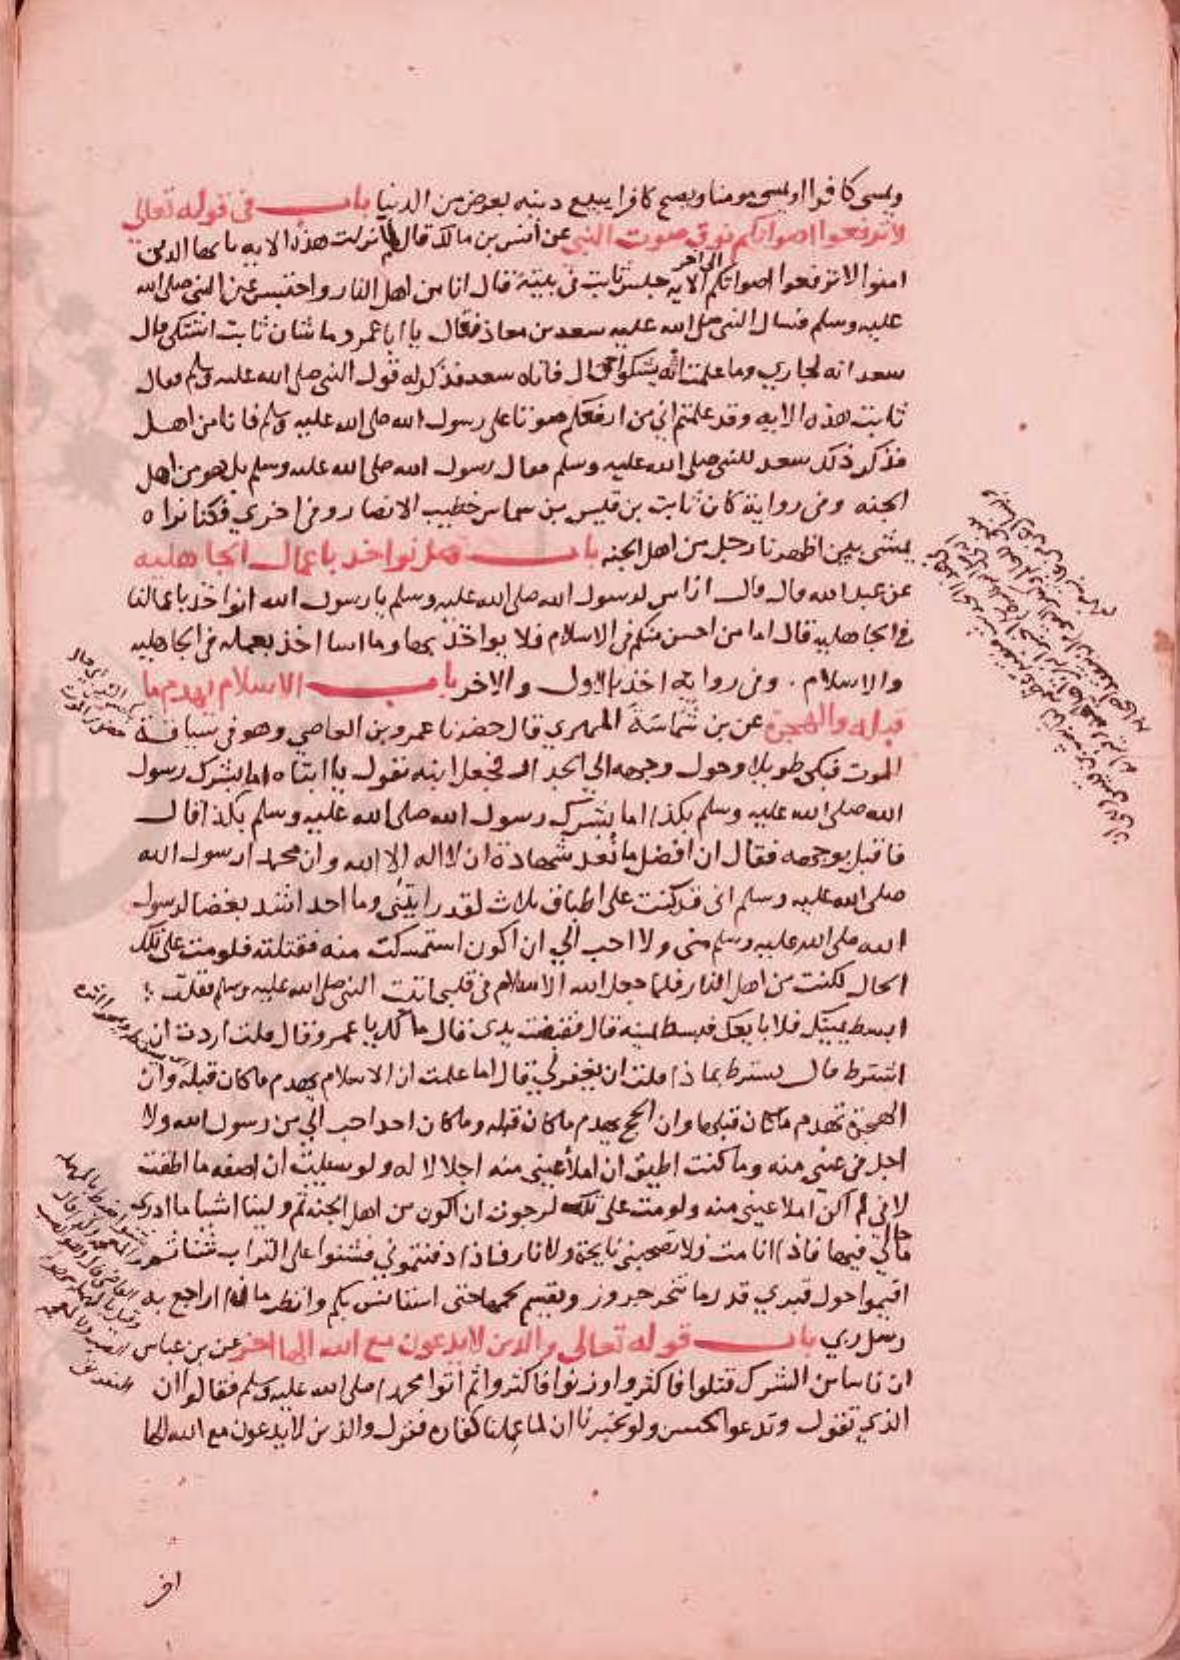 ويمسي كافرا او يمسي مومنا ويصبح كافرا يبيع دينه بعرض من الدنيا باب في قوله تعالى
لا ترفعوا اصواتكم فوق صوت النبي عن انس بن مالك قال لما نزلت هذه الايه يا يها الذين
امنوا لا ترفعوا اصواتكم الى اخر الايه جلس ثابت في بيته قال انا من اهل النار واحتبس عن النبي صلى الله
عليه وسلم فسال النبي صلى الله عليه سعد بن معاذ فقال يا ابا عمرو ما شان ثابت اشتكى قال
سعد انه لجاري وما علمت انه يشكوا قال فاتاه سعد فذكر له قول النبي صلى الله عليه وسلم فقال
ثابت هذه الايه وقد علمتم اني من ارفعكم صوتا على رسول الله صلى الله عليه وسلم فانا من اهل
فذكر ذلك سعد للنبي صلى الله عليه وسلم فقال رسول الله صلى الله عليه وسلم بل هو من اهل
الجنه وفي رواية كان ثابت بن قيس بن شماس خطيب الانصار وفي اخرى فكنا نراه
يمشي بين اظهرنا رجل من اهل الجنه باب هل نواخذ باعمال الجاهليه
عن عبد الله قال قال اناس لرسول الله صلى الله عليه وسلم يا رسول الله انواخذ باعمالنا
في الجاهليه قال اما من احسن منكم في الاسلام فلا يواخذ بها وما اسا اخذ بعمله في الجاهليه
والاسلام . وفي روايه اخذ بالاول والاخر باب الاسلام يهدم ما
قبله والهجرة عن بن شماسة المهري قال حضرنا عمرو بن العاصي وهو في سياقة
الموت فبكى طويلا وحول وجهه الى الجدار فجعل ابنه يقول يا ابتاه اما بشرك رسول
الله صلى الله عليه وسلم بكذا اما بشرك رسول الله صلى الله عليه وسلم بكذا قال
فاقبل بوجهه فقال ان افضل ما نعد شهادة ان لا اله الا الله وان محمدا رسول الله
صلى الله عليه وسلم انى قد كنت على اطباق ثلاث لقد رايتني وما احد اشد بغضا لرسول
الله صلى الله عليه وسلم منى ولا احب الي ان اكون استمكنت منه فقتلته فلو مت على تلك
الحال لكنت من اهل النار فلما جعل الله الاسلام في قلبي اتيت النبي صلى الله عليه وسلم فقلت
ابسط يمينك فلابايعك فبسط يمينه قال فقبضت يدى قال مالك يا عمرو قال قلت اردت ان
اشترط قال تشترط بماذا قلت ان يغفر لي قال اما علمت ان الاسلام يهدم ما كان قبله وان
الهجرة تهدم ما كان قبلها وان الحج يهدم ما كان قبله وما كان احد احب الي من رسول الله ولا
اجل في عيني منه وما كنت اطيق ان املا عيني منه اجلالا له ولو سيلت ان اصفه ما اطقت
لاني لم اكن املا عيني منه ولو مت على تلك لرجوت ان اكون من اهل الجنه ثم ولينا اشيا ما ادري
ما حالي فيها فاذا انا مت فلا تصحبني نايحة ولا نار فاذا دفنتموني فشنوا على التراب شنا ثم
اقيموا حول قبري قدر ما تنحر جزور ويقسم لحمها حتى استانس بكم وانظر ماذا اراجع به
رسل ربي باب قوله تعالى والذين لا يدعون مع الله الها اخر عن بن عباس
ان ناسا من الشرك قتلوا فاكثروا وزنوا فاكثروا ثم اتوا محمدا صلى الله عليه وسلم فقالوا ان
الذي تقول وتدعوا لحسن ولو تخبرنا ان لما عملنا كفاره فنزل والذين لا يدعون مع الله الها
اخر